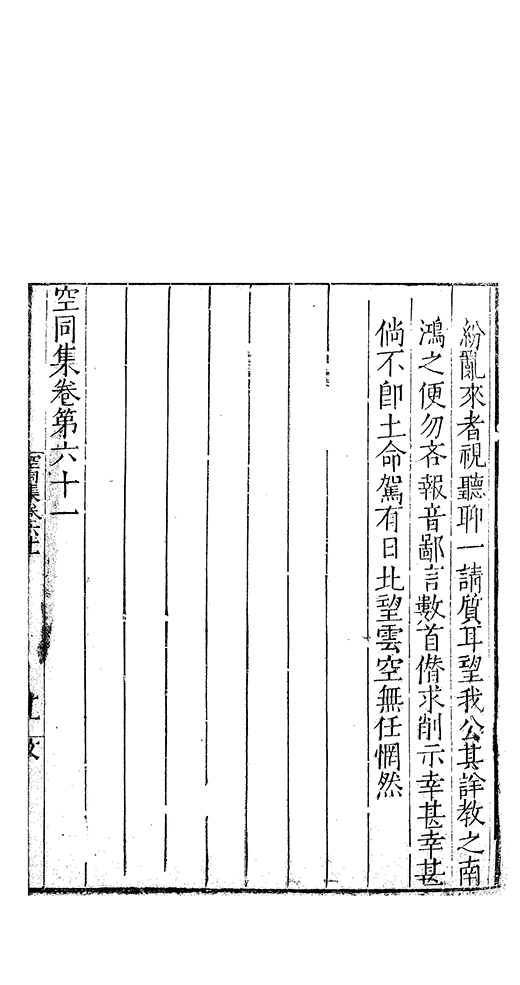 紛亂來者視聽聊一請質耳望我公其詮教之南
鴻之便勿吝報音鄙言數首僭求削示幸甚幸甚
倘不卽土命駕有日北望雲空無任惘然
空同集卷第六十一
空同集卷六十一
文